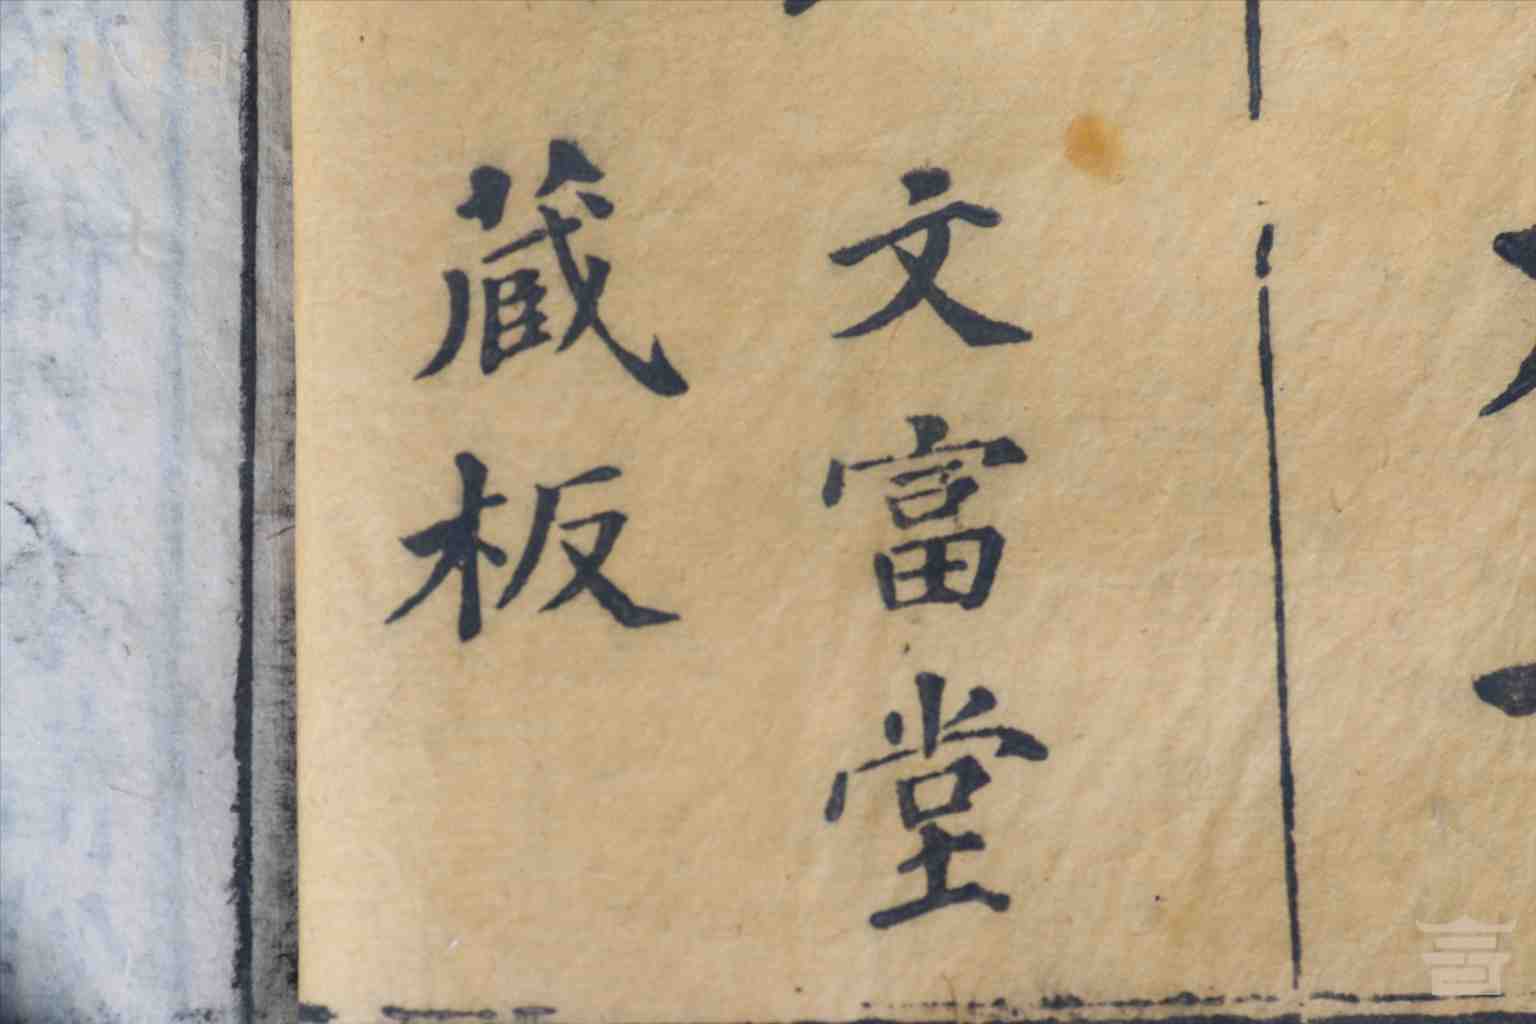 文富堂
蔵板